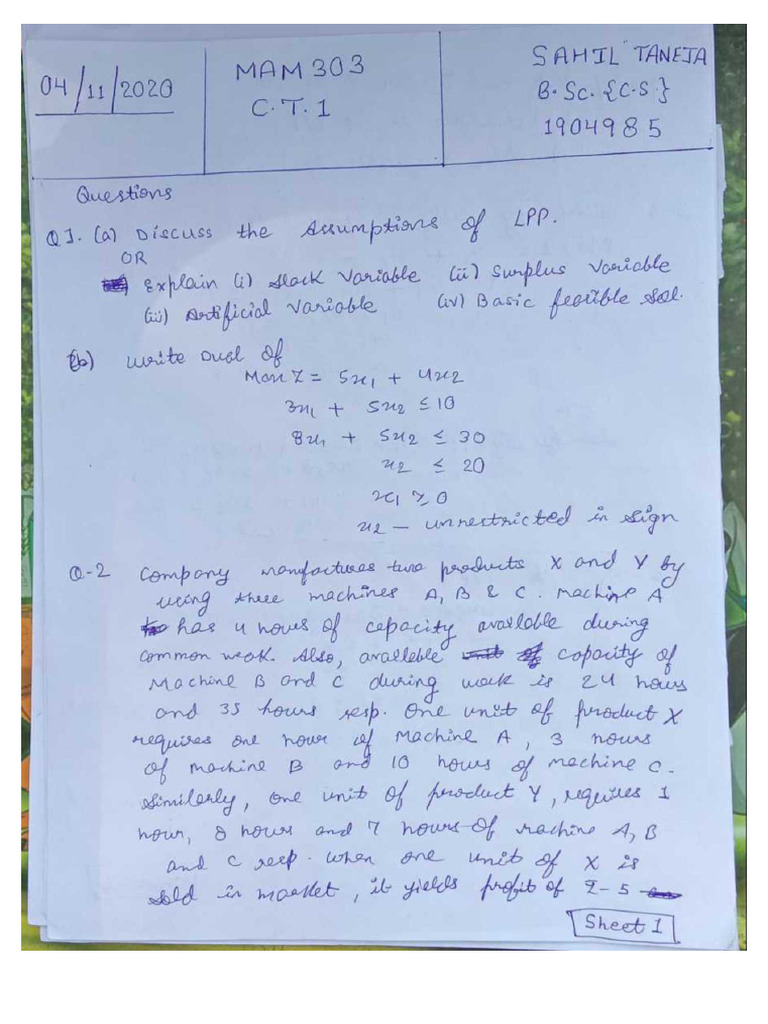 04/11/2020
MAM 303
C.T.1
SAHIL TANEJA
B.Sc. {C.S}
1904985
Questions
Q1. (a) Discuss the Assumptions of LPP.
OR
Explain (i) Slack Variable (ii) Surplus Variable
(iii) Artificial Variable (iv) Basic feasible Sol.
(b) Write Dual of
Max Z = 5x1 + 4x2
3x1 + 5x2 ≤ 10
8x1 + 5x2 ≤ 30
x2 ≤ 20
x1 ≥ 0
x2 - unrestricted in sign
Q-2 Company manufactures two products X and Y by
using three machines A, B & C. Machine A
has 4 hours of capacity available during
common week. Also, available capacity of
Machine B and C during week is 24 hours
and 35 hours resp. One unit of product X
requires one hour of Machine A, 3 hours
of machine B and 10 hours of machine C.
Similarly, one unit of product Y, requires 1
hour, 8 hours and 7 hours of machine A, B
and C resp. when one unit of X is
sold in market, it yields profit of ₹-5
Sheet 1